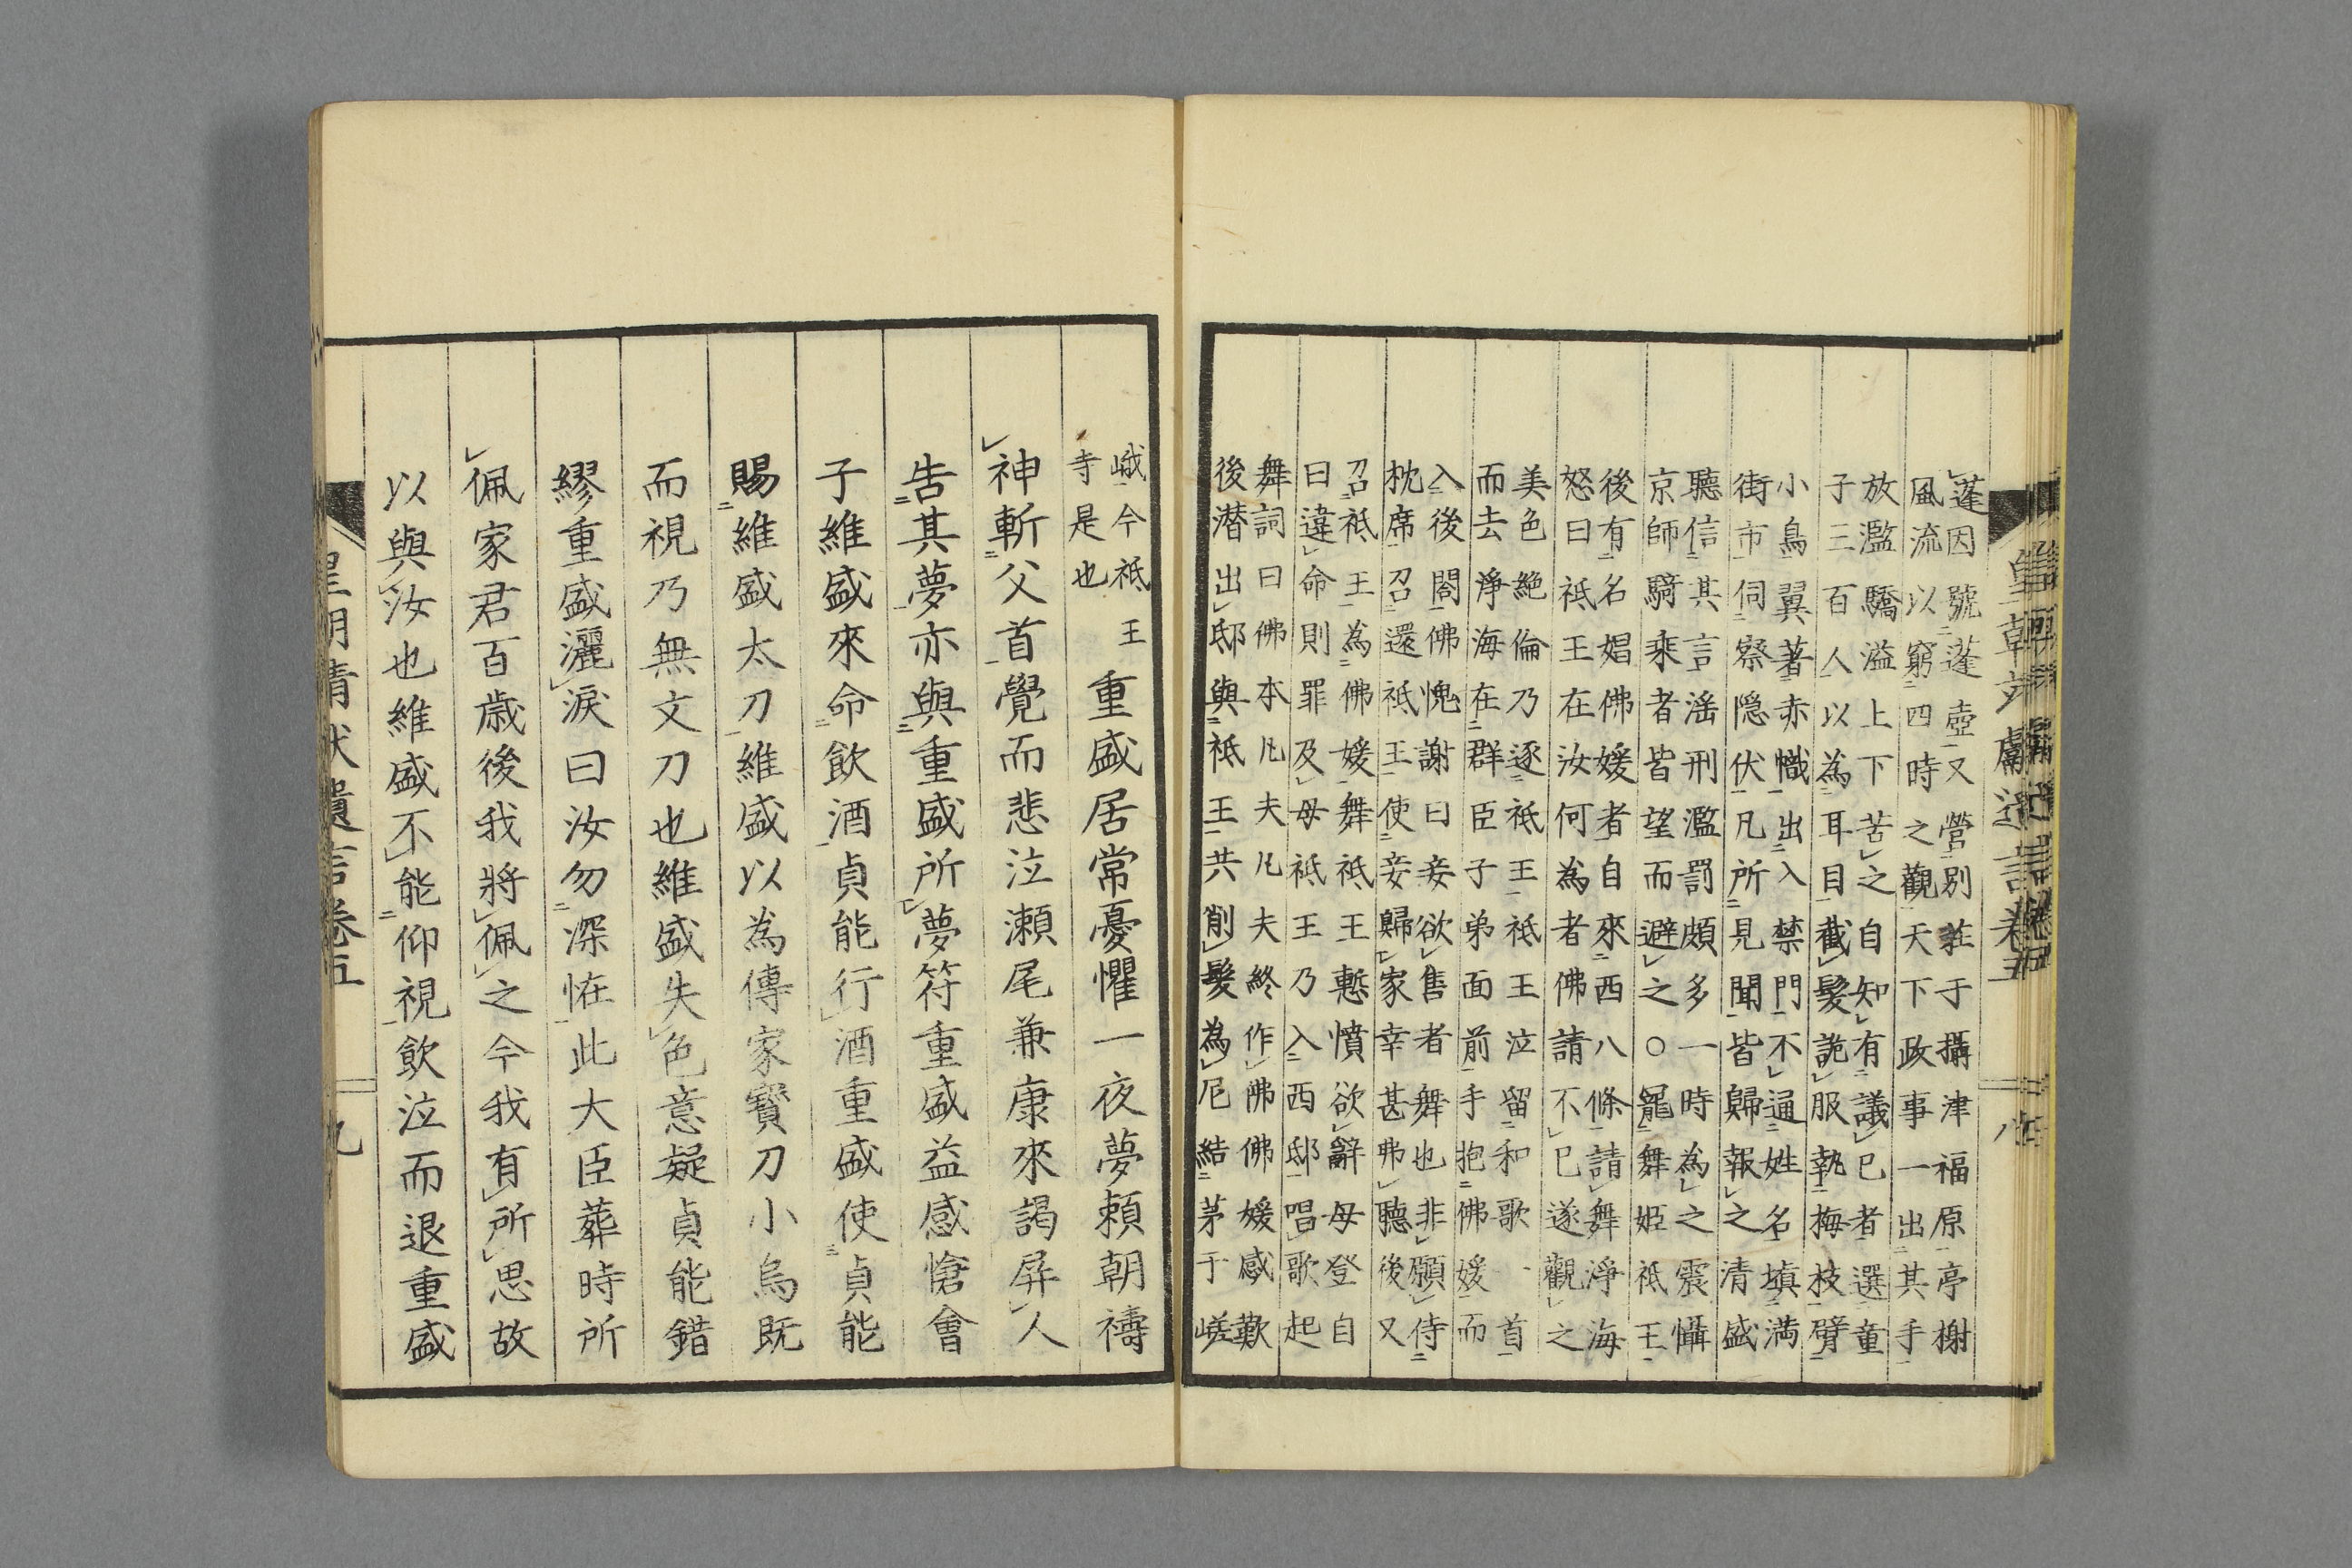 蓬因號蓬壺又營別莊于攝津福原亭榭
風流以窮四時之觀天下政事一出其手
放濫驕溢上下苦之自知有議已者選童
子三百人以為耳目截髮詭服執梅枝臂
小鳥翼著赤幟出入禁門不通姓名塡満
街市伺察隠伏凡所見聞皆歸報之清盛
聽信其言滛刑濫罰頗多一時為之震懾
京師騎乗者皆望而避之○寵舞姫祇王
後有名娼佛媛者自來西八條請舞淨海
怒曰祇王在汝何為者佛請不已遂觀之
美色絶倫乃逐祇王祇王泣留和歌一首
而去淨海在群臣子弟面前手抱佛媛而
入後閤佛愧謝曰妾欲售者舞也非願侍
枕席召還祇王使妾歸家幸甚弗聽後又
召祇王為佛媛舞祇王慙憤欲辭母登自
曰違命則罪及母祇王乃入西邸唱歌起
舞詞曰佛本凡夫凡夫終作佛佛媛感歎
後潜出邸與祇王共削髮為尼結茅于嵯
峨今祇王
寺是也
重盛居常憂懼一夜夢頼朝禱
神斬父首覺而悲泣瀬尾兼康來謁屏人
告其夢亦與重盛所夢符重盛益感愴會
子維盛來命飲酒貞能行酒重盛使貞能
賜維盛太刀維盛以為傳家寳刀小烏既
而視乃無文刀也維盛失色意疑貞能錯
繆重盛灑淚曰汝勿深恠此大臣葬時所
佩家君百歳後我將佩之今我有所思故
以與汝也維盛不能仰視飲泣而退重盛